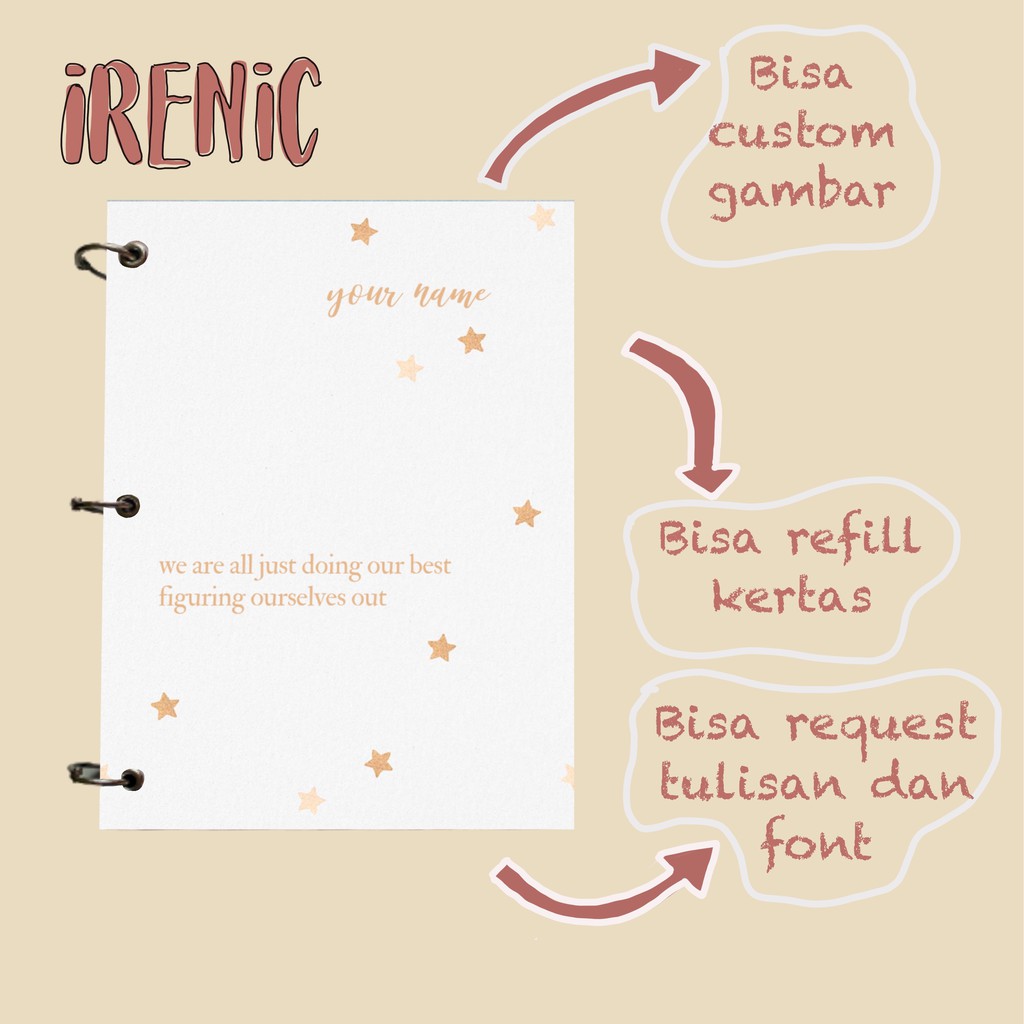 iRENiC
Bisa
custom
gambar
your name
we are all just doing our best
figuring ourselves out
Bisa refill
kertas
Bisa request
tulisan dan
font